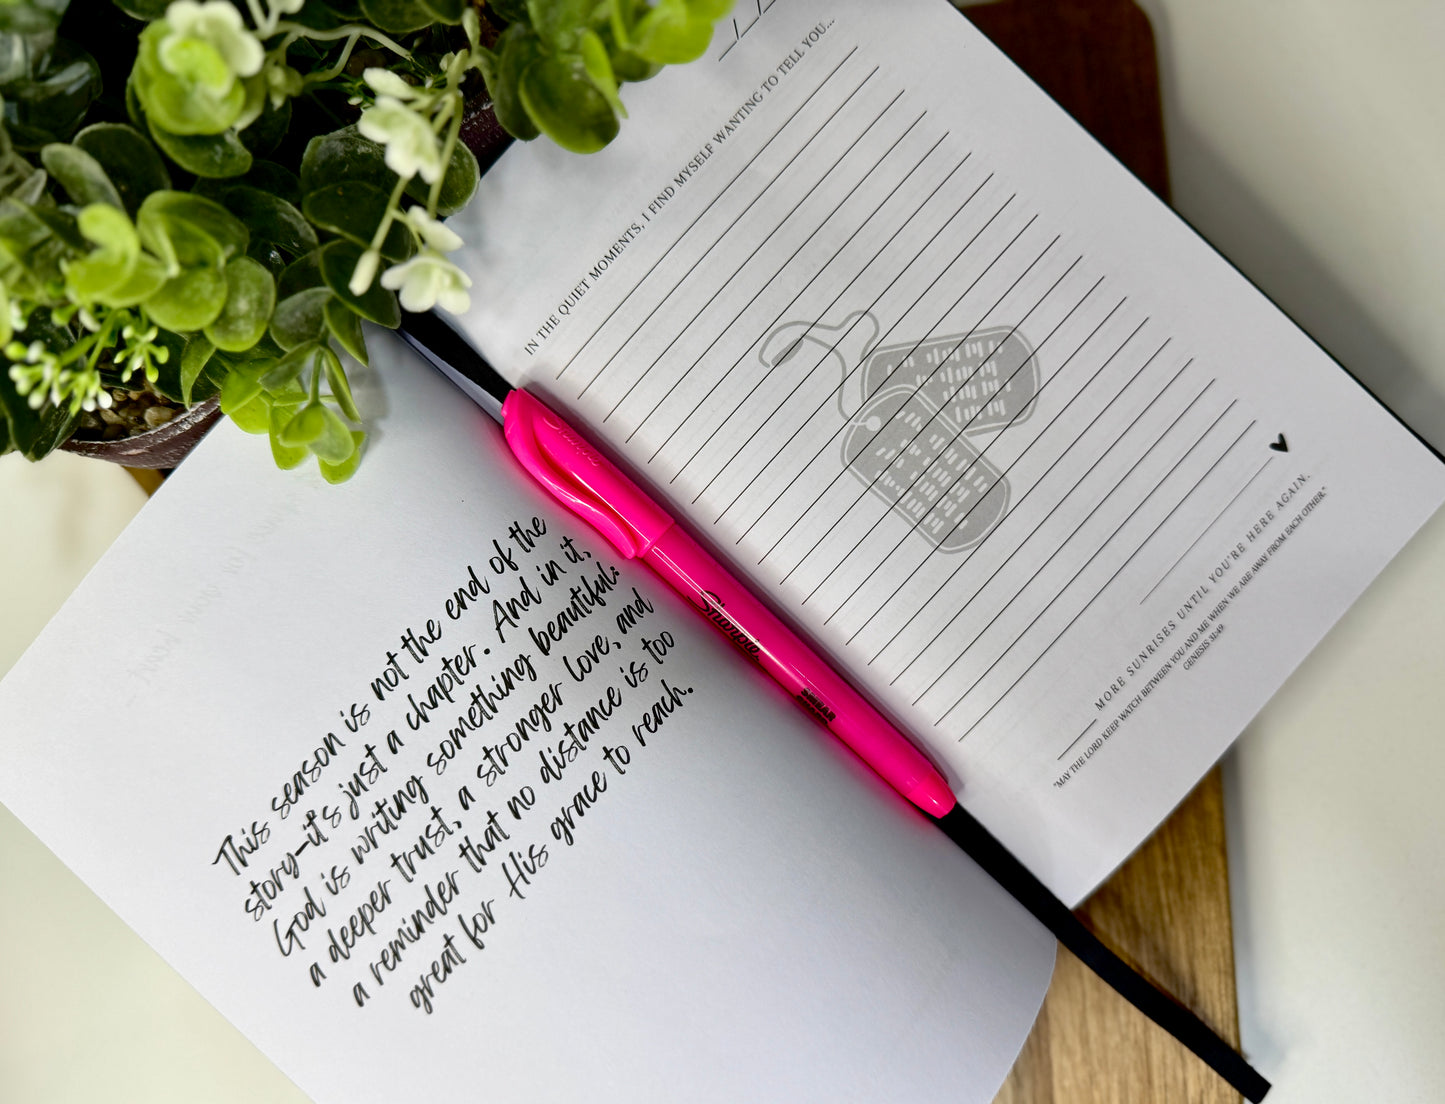 This season is not the end of the
story—it's just a chapter. And in it,
God is writing something beautiful:
a deeper trust, a stronger love, and
a reminder that no distance is too
great for His grace to reach.
Sharpie
SMEAR
GUARD
IN THE QUIET MOMENTS, I FIND MYSELF WANTING TO TELL YOU...
MORE SUNRISES UNTIL YOU'RE HERE AGAIN.
"MAY THE LORD KEEP WATCH BETWEEN YOU AND ME WHEN WE ARE AWAY FROM EACH OTHER."
GENESIS 31:49